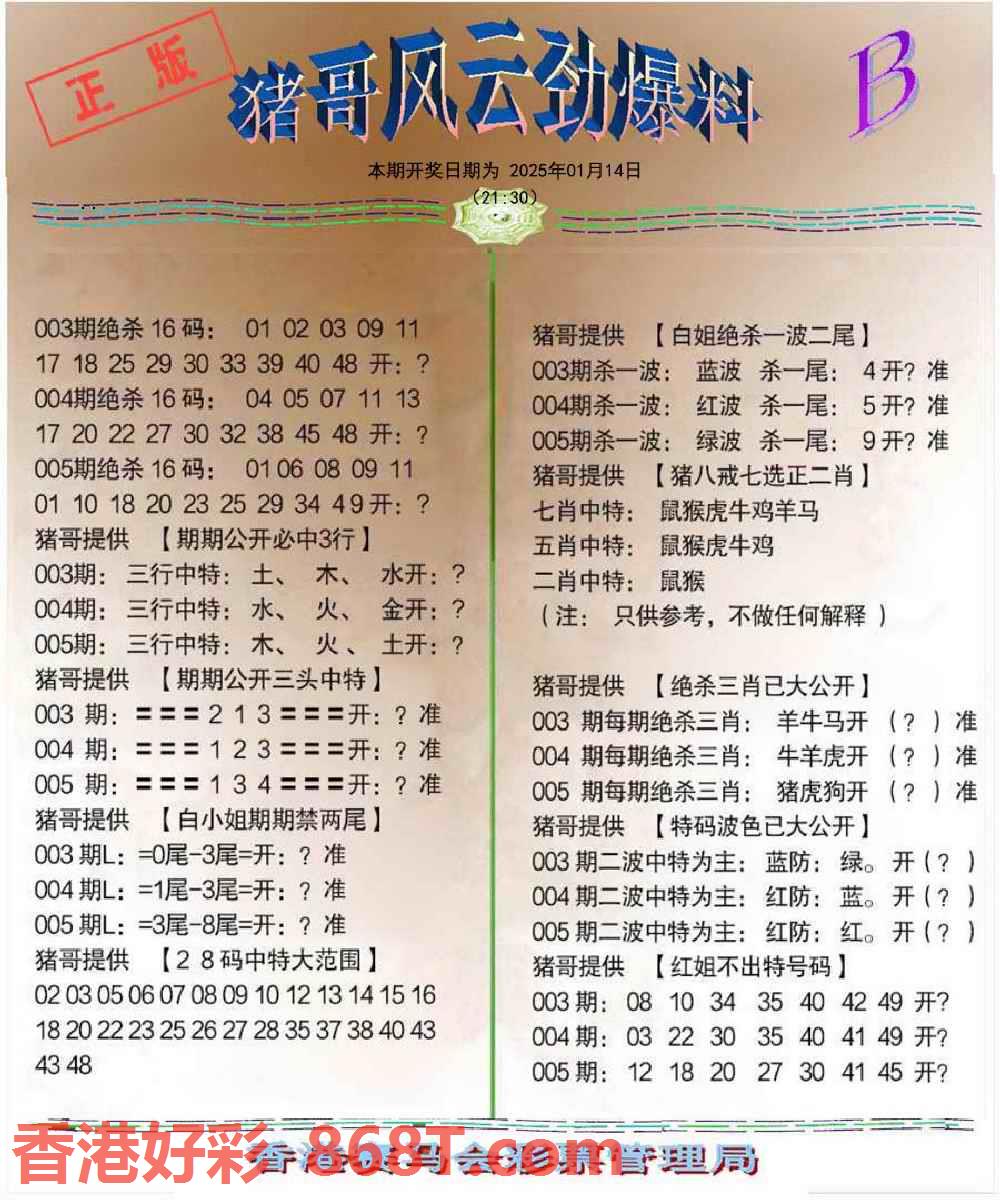 正版
猪哥风云劲爆料
B
本期开奖日期为 2025年01月14日
(21:30)
003期绝杀 16 码： 01 02 03 09 11
17 18 25 29 30 33 39 40 48 开：？
004期绝杀 16 码： 04 05 07 11 13
17 20 22 27 30 32 38 45 48 开：？
005期绝杀 16 码： 01 06 08 09 11
01 10 18 20 23 25 29 34 49 开：？
猪哥提供 【期期公开必中3行】
003期：三行中特：土、 木、 水开：？
004期：三行中特：水、 火、 金开：？
005期：三行中特：木、 火 、 土开：？
猪哥提供 【期期公开三头中特】
003 期：〓〓〓2 1 3〓〓〓开：？准
004 期：〓〓〓1 2 3〓〓〓开：？准
005 期：〓〓〓1 3 4〓〓〓开：？准
猪哥提供 【白小姐期期禁两尾】
003 期L：=0尾-3尾=开：？准
004 期L：=1尾-3尾=开：？准
005 期L：=3尾-8尾=开：？准
猪哥提供 【2 8 码中特大范围】
02 03 05 06 07 08 09 10 12 13 14 15 16
18 20 22 23 25 26 27 28 35 37 38 40 43
43 48
猪哥提供 【白姐绝杀一波二尾】
003期杀一波： 蓝波 杀一尾： 4 开？准
004期杀一波： 红波 杀一尾： 5 开？准
005期杀一波： 绿波 杀一尾： 9 开？准
猪哥提供 【猪八戒七选正二肖】
七肖中特： 鼠猴虎牛鸡羊马
五肖中特： 鼠猴虎牛鸡
二肖中特： 鼠猴
（注： 只供参考，不做任何解释 ）
猪哥提供 【绝杀三肖已大公开】
003 期每期绝杀三肖： 羊牛马开 （？）准
004 期每期绝杀三肖： 牛羊虎开 （？）准
005 期每期绝杀三肖： 猪虎狗开 （？）准
猪哥提供 【特码波色已大公开】
003 期二波中特为主： 蓝防： 绿。开（？）
004 期二波中特为主： 红防： 蓝。开（？）
005 期二波中特为主： 红防： 红。开（？）
猪哥提供 【红姐不出特号码】
003 期： 08 10 34 35 40 42 49 开？
004 期： 03 22 30 35 40 41 49 开？
005 期： 12 18 20 27 30 41 45 开？
香港好彩-868T.com
香港赛马会彩票管理局